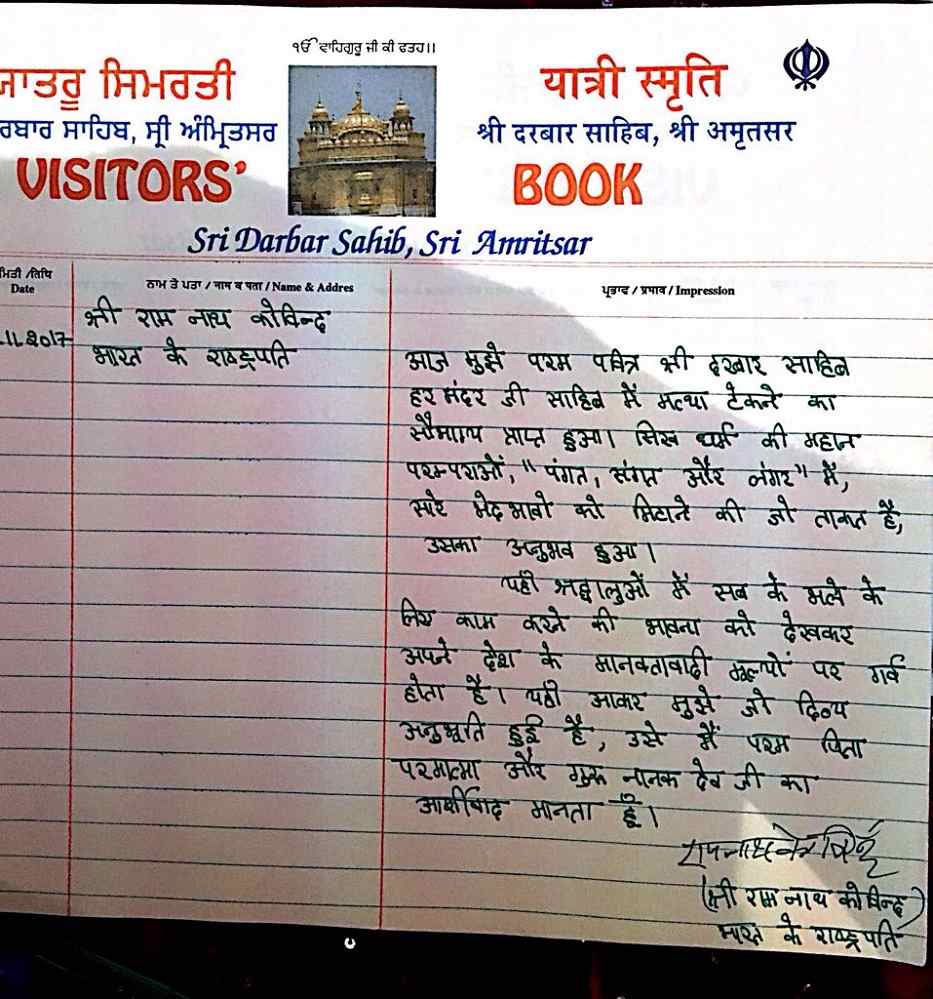 ੧ਓ ਵਾਹਿਗੁਰੂ ਜੀ ਕੀ ਫਤਹ॥
ਜਾਤਰੂ ਸਿਮਰਤੀ
यात्री स्मृति
ਰਬਾਰ ਸਾਹਿਬ, ਸ੍ਰੀ ਅੰਮ੍ਰਿਤਸਰ
श्री दरबार साहिब, श्री अमृतसर
VISITORS' BOOK
Sri Darbar Sahib, Sri Amritsar
ਮਿਤੀ /तिथि
Date
ਨਾਮ ਤੇ ਪਤਾ / नाम व पता / Name & Addres
ਪ੍ਰਭਾਵ / प्रभाव / Impression
.11.2017
श्री राम नाथ कोविन्द
भारत के राष्ट्रपति
आज मुझे परम पवित्र श्री दरबार साहिब
हर मंदर जी साहिब में मत्था टेकने का
सौभाग्य प्राप्त हुआ। सिख धर्म की महान
परम्पराओं, "पंगत, संगत और लंगर" में,
सारे भेदभावों को मिटाने की जो ताकत है,
उसका अनुभव हुआ।
यहाँ श्रद्धालुओं में सब के भले के
लिए काम करने की भावना को देखकर
अपने देश के मानवतावादी मूल्यों पर गर्व
होता है। यहाँ आकर मुझे जो दिव्य
अनुभूति हुई है, उसे मैं परम पिता
परमात्मा और गुरू नानक देव जी का
आर्शीवाद मानता हूँ।
(श्री राम नाथ कोविन्द)
भारत के राष्ट्रपति